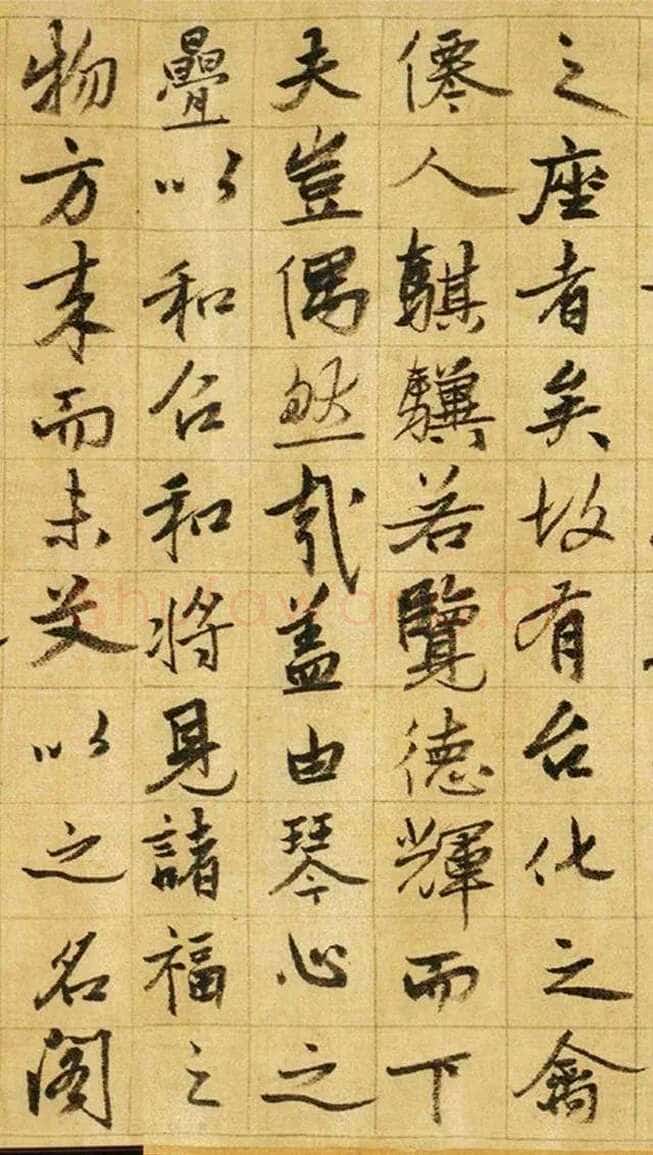 之座者矣故有台化之禽
僊人騏驥若覽德輝而下
夫豈偶然哉盖由琴心之
疊以和召和將見諸福之
物方来而未艾以之名閣